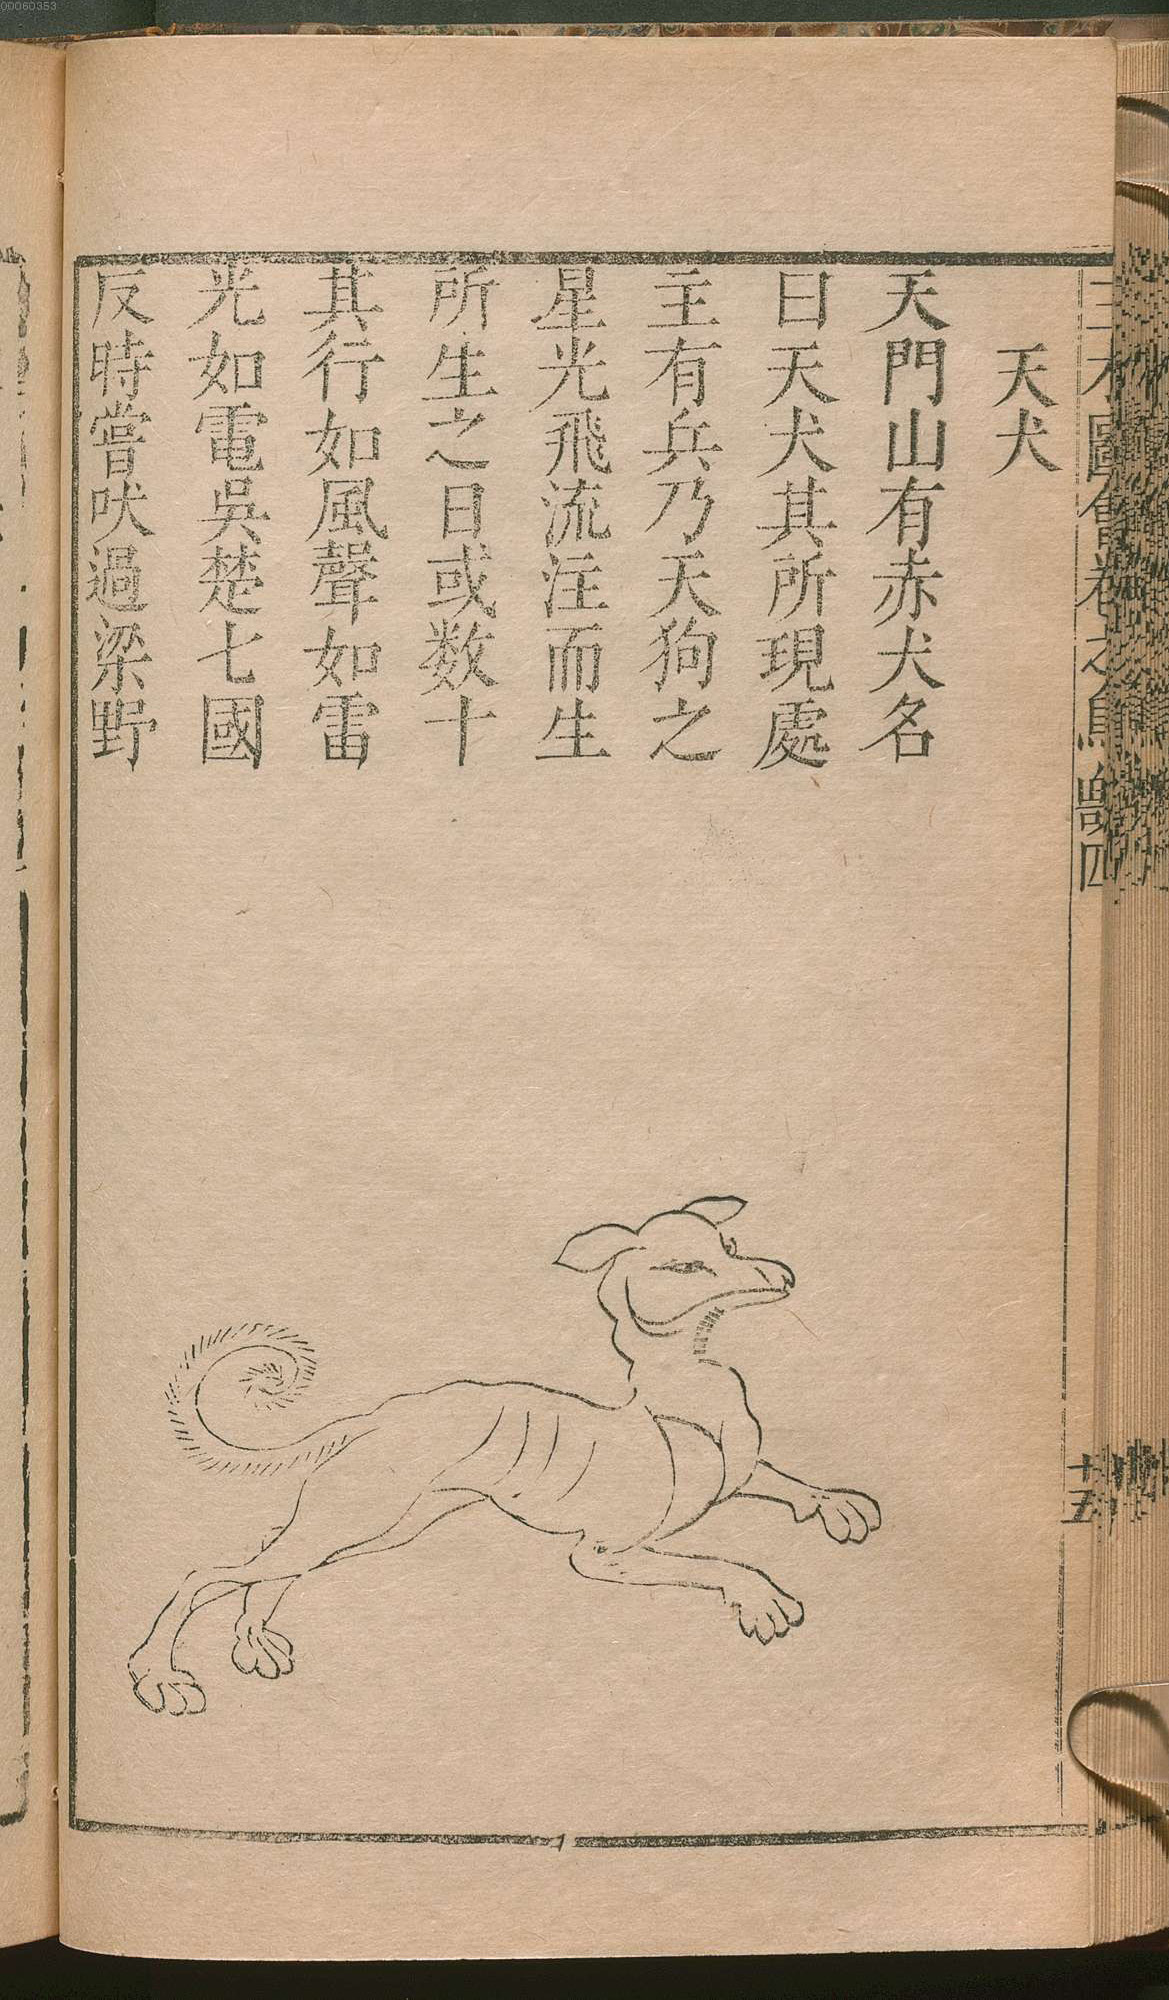 00060353
三才圖會卷之鳥獸四
天犬
天門山有赤犬名
曰天犬其所現處
主有兵乃天狗之
星光飛流注而生
所生之日或数十
其行如風聲如雷
光如電吳楚七國
反時嘗吠過梁野
十五